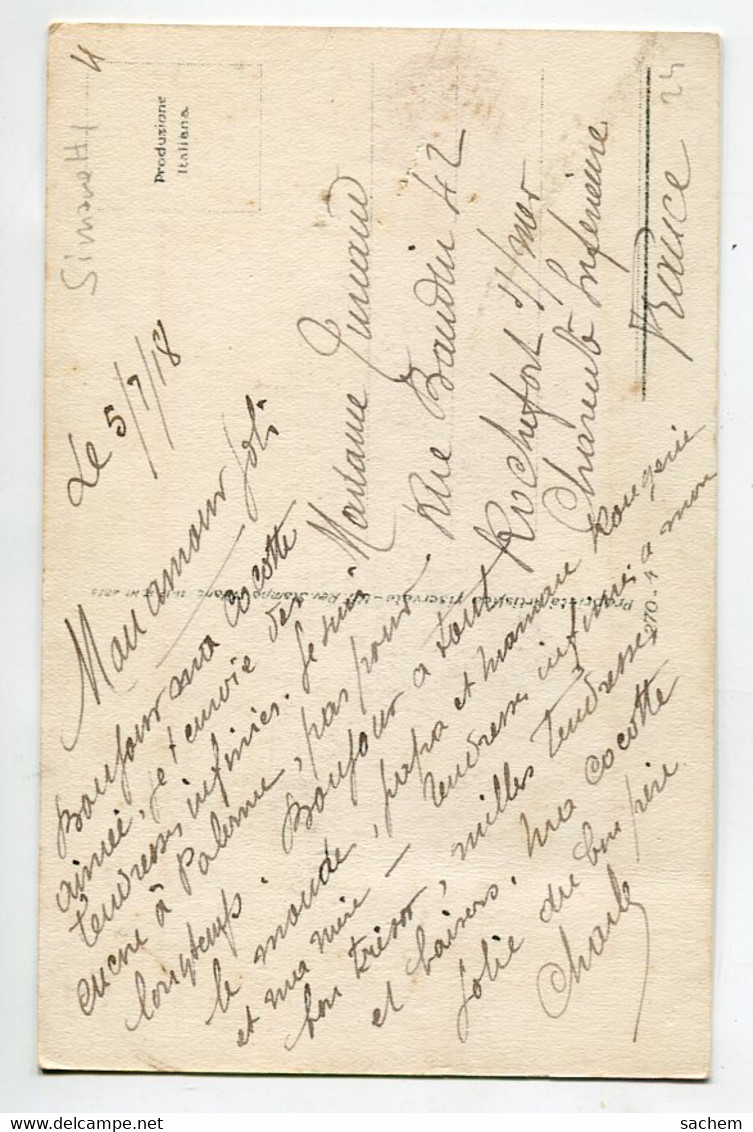 Simonetti
4
Produzione
Italiana
Le 5/7/18
Mon amour joli
Bonjour ma cocotte
aimée, je t'envoie des
tendresses infinies. Je suis
encre à Palerme, pas pour
longtemps. Bonjour a tout
le monde, papa et maman Rougerie
et ma mère — tendresses infinies a mon
bon trésor, milles tendresses
et baisers, ma cocotte
jolie du bon père
Charles
Madame
Rue Baudin 42
Rochefort s/mer
Charente Inferieure
France
24
Proprietà artistica riservata
270-4
sachem
delcampe.net